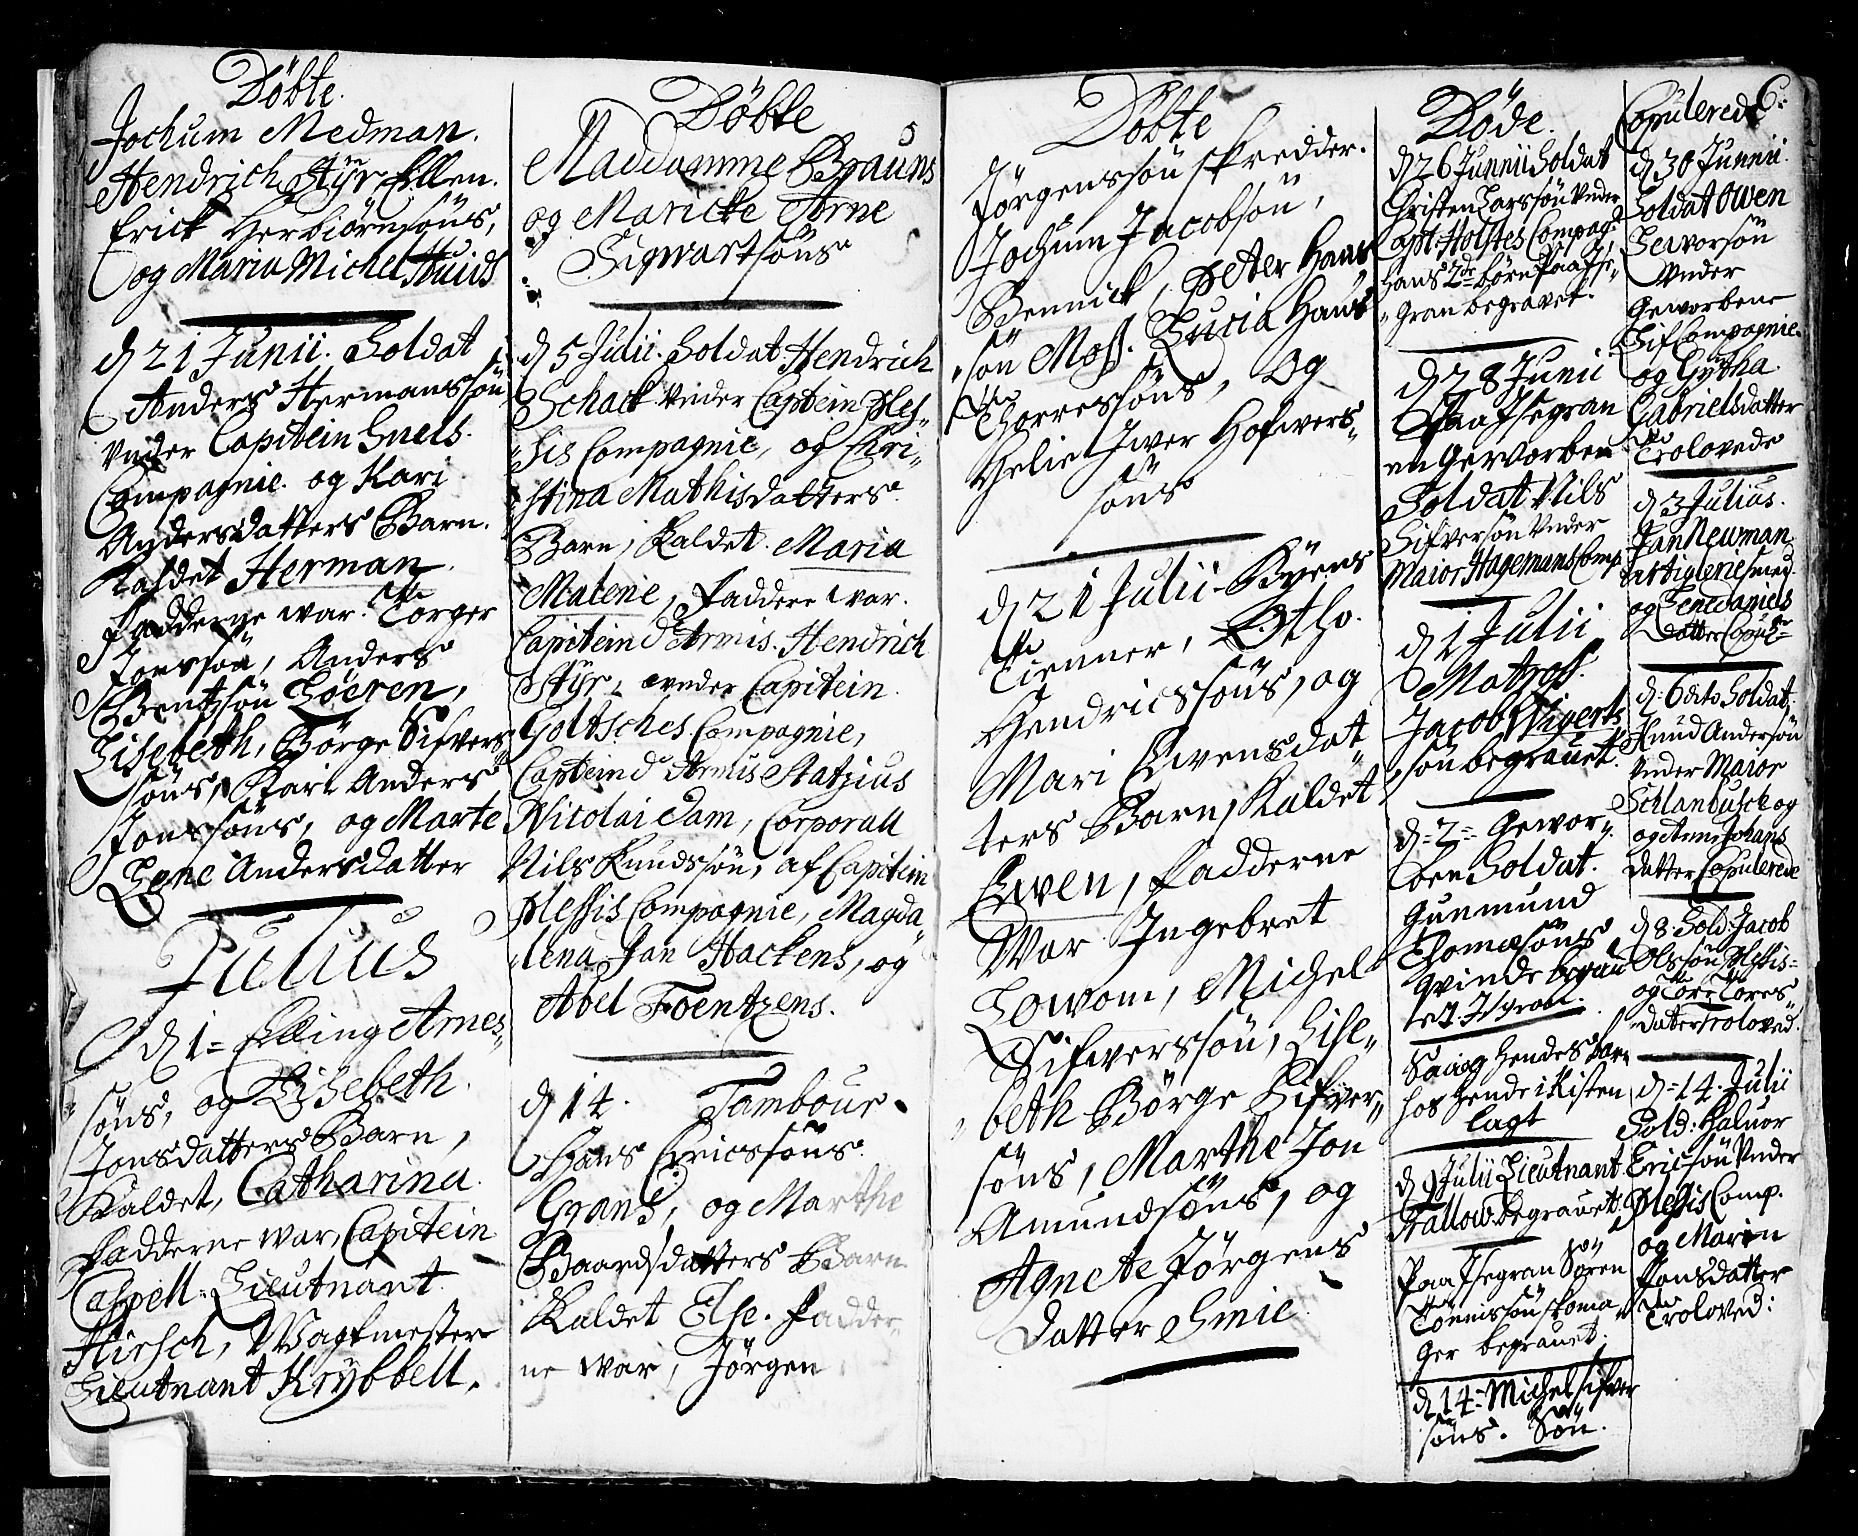 Döbte.
Jochum Medman.
Hendrich Styr, Ellen.
Erick Herbiörnsöns,
og Maria Michel Huids
d 21 Junii. Soldat
Anders Hermanssön
Vnder Capitein Snels.
Compagnie. og Kari
Andersdatters Barn.
Kaldet Herman.
Fadderne war. Torger
Jonssön, Anders
Bentssön Löeren,
Lisebeth, Börge Sifvers
söns, Kari Anders
Jonssöns, og Marte
Lene Andersdatter
Julius
d 1 = Elling Arnes
söns, og Lisebeth.
Jonsdatters Barn,
Kaldet, Catharina.
Fadderne war, Capitein
Caspell = Lieutnant
Hirsch, Wagtmester
Lieutnant Krybbell.
Döbte 5
Maddamme Brauns
og Maricke Arne
Sigwartsöns
d 5 Julii. Soldat Hendrich
Schack Vnder Captein Ples-
sis Compagnie, og Chri-
stina Mathisdatters
Barn, Kaldet. Maria
Malene, Faddere war.
Capitein d'Armis. Hendrich
Styr, vnder Capitein.
Goltsches Compagnie,
Captein d'Armis Matzius
Nicolai Dam, Corporall
Nils Knudssön, af Capitein
Plessis Compagnie, Magda-
lena Jan Hackens, og
Abel Foentzens.
d 14. Tambour
Hans Ericssöns
Grans, og Marthe
Baardsdatters Barn
Kaldet Else. Fadder-
ne war, Jörgen
Döbte
Jörgenssön skredder.
Jochum Jacobsön,
Bennick, Peter Hans
sön Moss. Lucia Hans
Thorressöns, Og
Helie Iwer Hofwers-
söns
d 21 Julii Byens
Tienner, Otho.
Hendricssöns, og
Mari Ewensdat
ters Barn, Kaldet
Ewen, Fadderne
War Ingebret
Lowom, Michel
Sifverssön, Lise-
beth Börge Sifver-
söns, Marthe Jon
Amundsöns, og
Agnete Jörgens
datter Smie
Döde.
d 26 Junnii Soldat
Christen Larssön Vnder
Capt: Holstes Compag:
hans 2de börn Paa Ise-
gran begravet.
d 28 Junii
Paa Isegran
en Gervorben
Soldat Nils
Sifversön Vnder
Maior Hagemans Comp
d 1 Julii
Matros.
Jacob Wigerts
sön begrauet.
d = 2 = Gewor-
ben Soldat.
Gunmund
Thomesöns
Qvinde begrau
et Isgran.
Saa og hendes barn
hos hende i Kisten
lagt
d 9 Julii Lieutnant
Hallow begrauet.
Paa Isegran Sören
Tönnissön skoma
ger begrauet.
d 14 = Michel Sifver
söns. Sön.
Copulerede 6:
d 30 Junnii.
Soldat Owen
Leivorsön
Vnder
Geworbene
Lifcompagnie
og Gytha
Gabrielsdatter
Trolovede
d 3 Julius.
Jan Neuman
Artiglerie smed.
og Lene Daniels
datter Copul=
d = 6 dito Soldat
Knud Andersön
Vnder Maior
Schlanbusch og
og Anne Johans
datter Copulerede
d 8 Sold: Jacob
Olssön Plessis=
og Tore Tores
datter troloved.
d = 14. Julii
Sold: Haluor
Ericsön Vnder
Plessis Comp.
og Maren
Jonsdatter
Troloved: